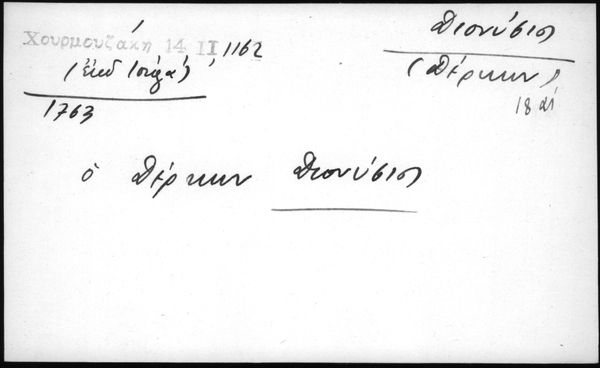 Χουρμουζάκη 14 II, 1162
(ἐκδ Ἰόργα)
1763
Διονύσιος
(Δέρκων)
18 αἰ
ὁ Δέρκων Διονύσιος